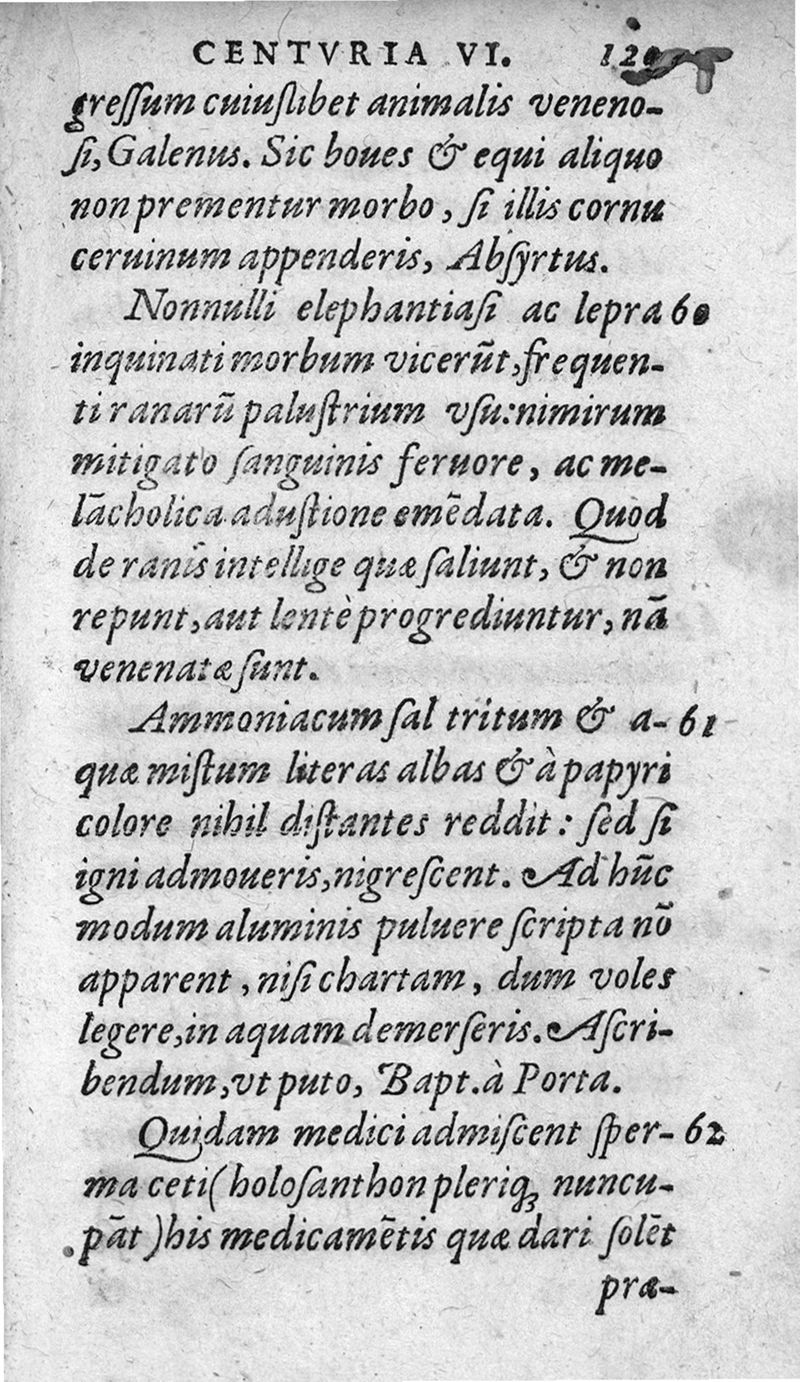 CENTVRIA VI.
greſſum cuiuſlibet animalis veneno-
ſi, Galenus. Sic boues & equi aliquo
non prementur morbo, ſi illis cornu
ceruinum appenderis, Abſyrtus.
Nonnulli elephantiaſi ac lepra 60
inquinati morbum vicerũt, frequen-
ti ranarũ paluſtrium vſu: nimirum
mitigato ſanguinis feruore, ac me-
lãcholica aduſtione emẽdata. Quod
de ranis intellige quæ ſaliunt, & non
repunt, aut lentè progrediuntur, nã
venenatæ ſunt.
Ammoniacum ſal tritum & a- 61
quæ miſtum literas albas & à papyri
colore nihil diſtantes reddit: ſed ſi
igni admoueris, nigreſcent. Ad hũc
modum aluminis puluere ſcripta nõ
apparent, niſi chartam, dum voles
legere, in aquam demerſeris. Aſcri-
bendum, vt puto, Bapt. à Porta.
Quidam medici admiſcent ſper- 62
ma ceti (holoſanthon pleriqꝫ nuncu-
pãt) his medicamẽtis quæ dari ſolẽt
præ-